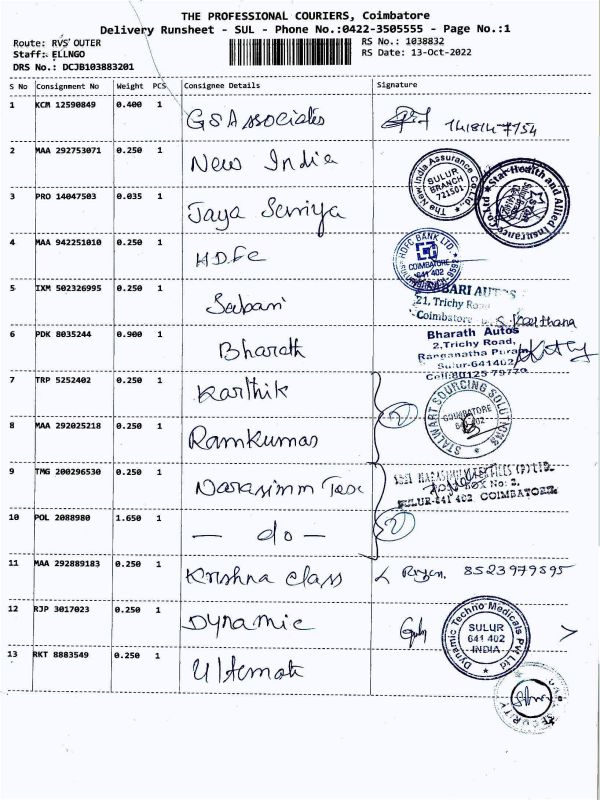 THE PROFESSIONAL COURIERS, Coimbatore
Delivery Runsheet - SUL - Phone No.:0422-3505555 - Page No.:1
Route: RVS OUTER
RS No.: 1038832
Staff: ELLNGO
RS Date: 13-Oct-2022
DRS No.: DCJB103883201
S No Consignment No Weight PCS Consignee Details Signature
1 KCM 12590849 0.400 1 GS Associates
2 MAA 292753071 0.250 1 New India
The New India Assurance Co.Ltd.
SULUR
BRANCH
721501
Star Health and Allied Insurance Co Ltd
3 PRO 14047503 0.035 1 Jaya Surriya
4 MAA 942251010 0.250 1 H.D.F.C
HDFC BANK LTD.
COIMBATORE
641 402
5 IXM 502326995 0.250 1 Sabari
SABARI AUTOS
21, Trichy Road
Coimbatore
6 PDK 8035244 0.900 1 Bharath
Bharath Autos
2,Trichy Road,
Ranganatha Puram
Sulur-641402
7 TRP 5252402 0.250 1 Karthik
STALWART SOURCING SOLUTIONS
COIMBATORE
641 402
8 MAA 292025218 0.250 1 Ramkumar
9 TMG 200296530 0.250 1 Narasimm Tex
BOX No: 2,
SULUR-641 402 COIMBATORE
10 POL 2088980 1.650 1 — do —
11 MAA 292889183 0.250 1 Krishna class 8523979595
12 RJP 3017023 0.250 1 Dynamic
Dynamic Techno Medicals Pvt Ltd
SULUR
641 402
INDIA
13 RKT 8883549 0.250 1 Ultemate
SECURITY